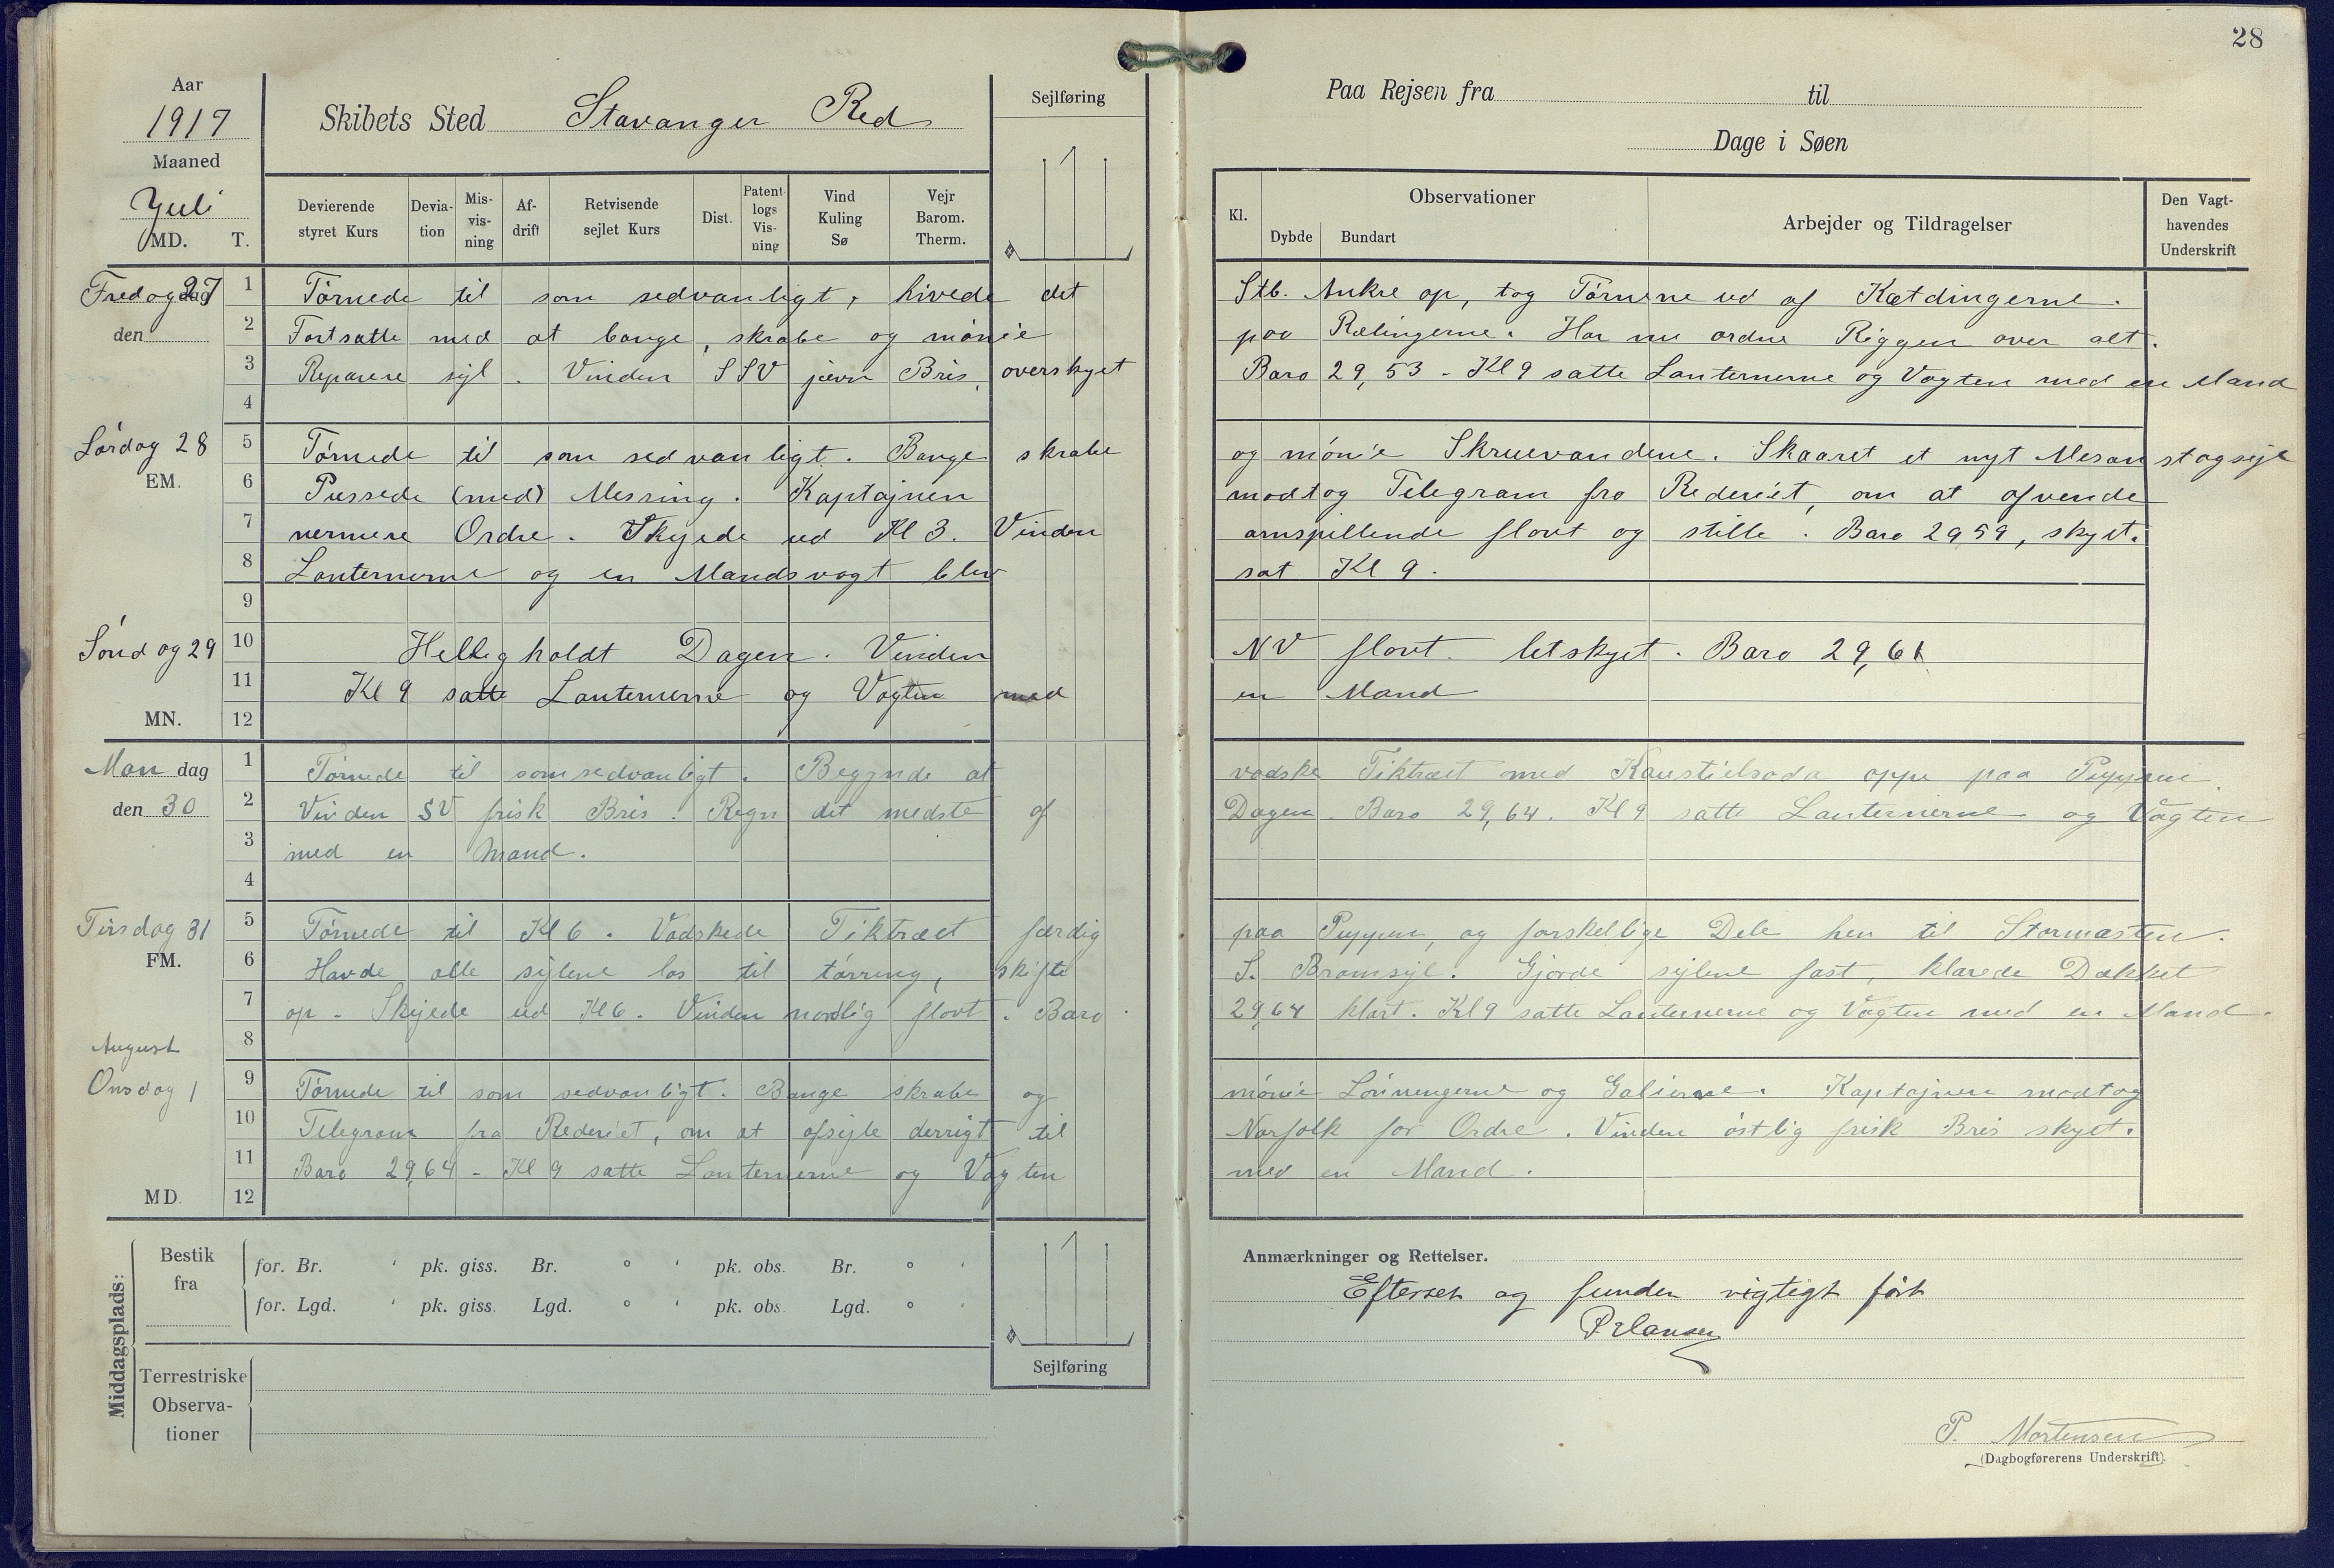 28
Aar
1917
Maaned
Juli
MD. T.
Skibets Sted Stavanger Red
Sejlføring
Paa Rejsen fra til
Dage i Søen
Devierende styret Kurs
Devia-tion
Mis-vis-ning
Af-drift
Retvisende sejlet Kurs
Dist.
Patent logs Vis-ning
Vind Kuling Sø
Vejr Barom. Therm.
Kl.
Observationer
Dybde Bundart
Arbejder og Tildragelser
Den Vagt-havendes Underskrift
Fredag 27 dag
den
1 Tørnede til som sedvanligt, hivede det Stb. Anker op, tog Tørnene ud af Kætdingerne.
2 Fortsatte med at bange, skrabe og mønie paa Rælingerne. Har nu ordne Riggen over alt.
3 Reparere sejl. Vinden SSV jævn Bris, overskyet Baro 29,53 - Kl 9 satte Lanternerne og Vagten med en Mand
4
Lørdag 28
EM.
5 Tørnede til som sedvanligt. Bange skrabe og mønie Skruevandene. Skaaret et nyt Mesanstagsejl
6 Pussede (med) Messing. Kaptajnen modtog Telegram fra Rederiet, om at afvende
7 nermere Ordre. Skejede ud Kl 3. Vinden omspillende flovt og stille. Baro 2959, skyet.
8 Lanternerne og en Mandsvagt blev sat Kl 9.
9
Søndag 29
10 Helligholdt Dagen. Vinden NV flovt. letskyet. Baro 29,61
11 Kl 9 satte Lanternerne og Vagten med en Mand
MN. 12
Mandag
den 30
1 Tørnede til som sedvanligt. Begynde at vadske Tiktræet med Kaustielsoda oppe paa Puppen.
2 Vinden SV frisk Bris. Regn det medste af Dagen. Baro 29,64. Kl 9 satte Lanternerne og Vagten
3 med en Mand.
4
Tirsdag 31
FM.
5 Tørnede til Kl 6. Vadskede Tiktræet færdig paa Puppen, og forskellige Dele hen til Stormasten.
6 Havde alle sejlene los til tørring, skifte S. Bramsejl. Gjorde sejlene fast, klarede Dækket
7 op. Skejede ud Kl 6. Vinden nordlig flovt. Baro 29,64 klart. Kl 9 satte Lanternerne og Vagten med en Mand.
8
August
Onsdag 1
9 Tørnede til som sedvanligt. Bange skrabe og mønie Lønningerne og Galierne. Kaptajnen modtog
10 Telegram fra Rederiet, om at afsejle derrigt til Norfolk for Ordre. Vinden østlig frisk Bris skyet.
11 Baro 29,64 - Kl 9 satte Lanternerne og Vagten med en Mand.
MD. 12
Middagsplads:
Bestik fra
for. Br. ' pk. giss. Br. ° ' pk. obs. Br. ° '
for. Lgd. ' pk. giss. Lgd. ° ' pk. obs. Lgd. ° '
Terrestriske Observa-tioner
Sejlføring
Anmærkninger og Rettelser.
Efterset og funden rigtigt ført
P. Mortensen
(Dagbogførerens Underskrift)